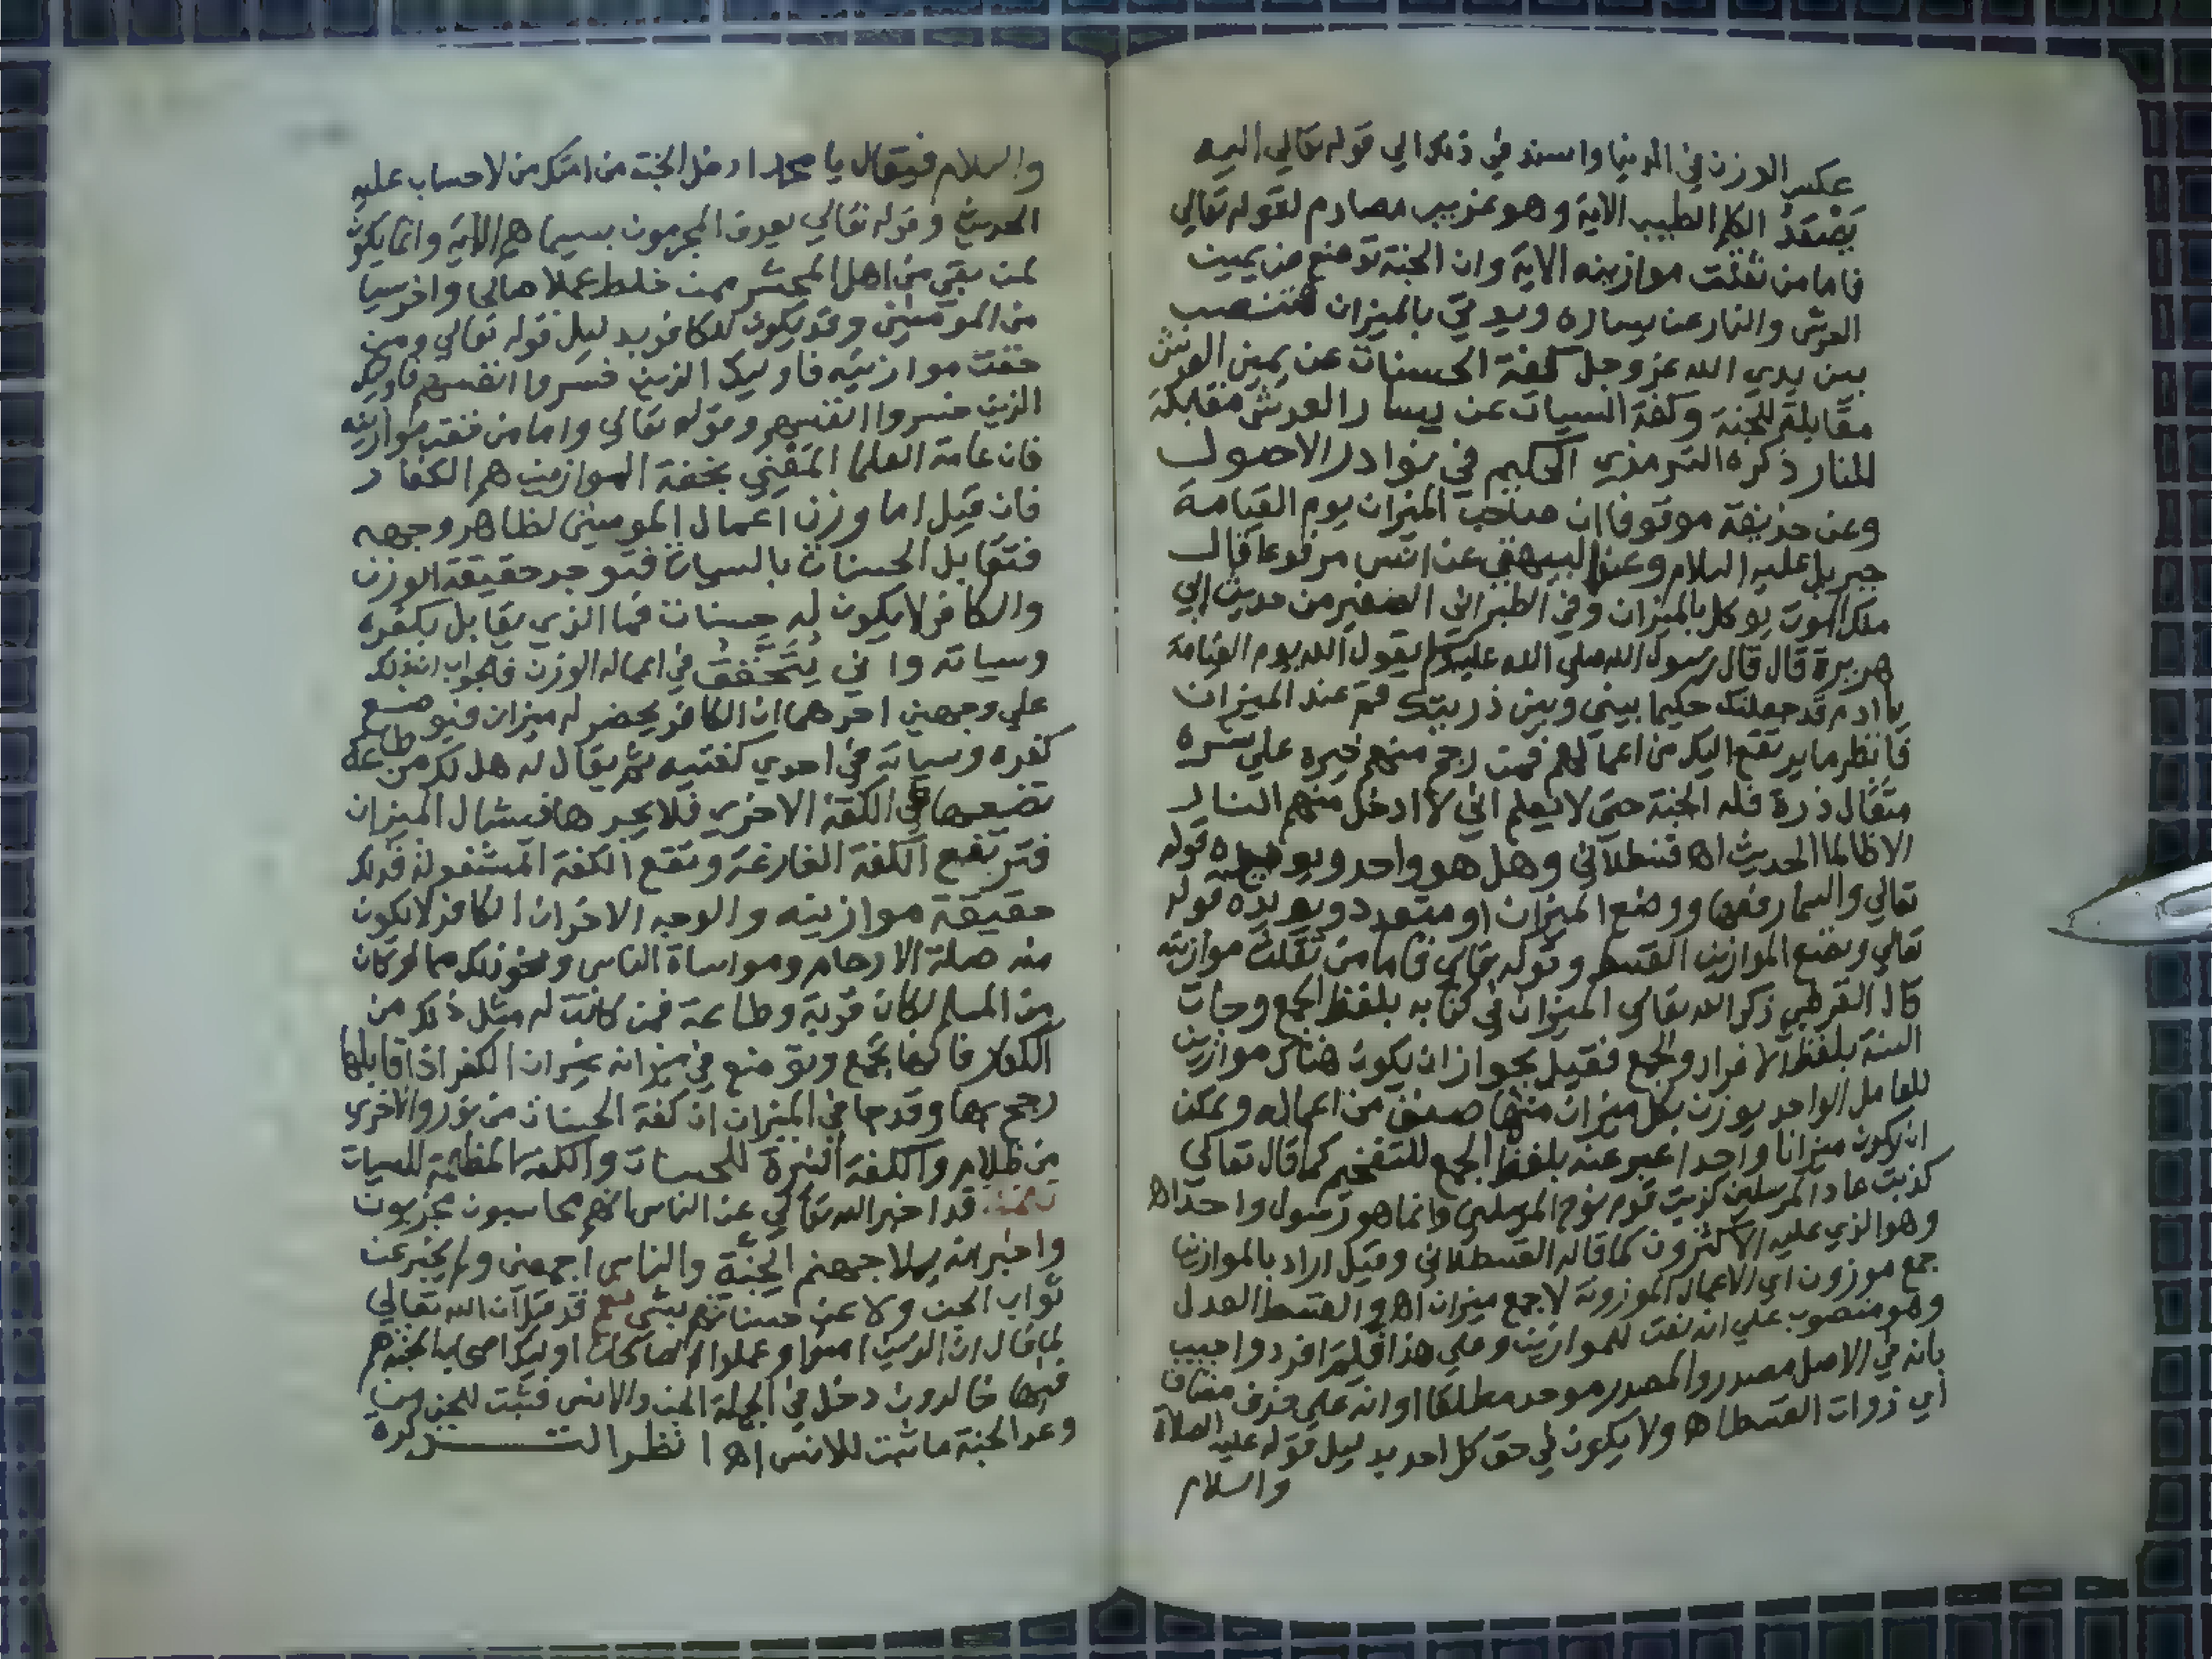 عكس الوزن في الدنيا واسند في ذلك الي قوله تعالي اليه
يَصْعَدُ الكلم الطيب الاية وهو غريب مصادم لقوله تعالي
فاما من ثقلت موازينه الاية وان الجنة توضع عن يمين
العرش والنار عن يساره ويوتي بالميزان فتنصب
بين يدي الله عز وجل كفة الحسنات عن يمين العرش
مقابلة للجنة وكفة السيات عن يسار العرش مقابلة
للنار ذكره الترمذي الحكيم في نوادر الاصول
وعن حذيفة موقوفا ان صاحب الميزان يوم القيامة
جبريل عليه السلام وعند البيهقي عن انس مرفوعا قال
ملك الموت يوكل بالميزان وفي الطبراني الصغير من حديث ابي
هريرة قال قال رسول الله صلي الله عليه وسلم يقول الله يوم القيامة
يا ادم قد جعلتك حكيما بيني وبين ذريتك قم عند الميزان
فانظر ما يرتفع اليك من اعمالهم فمن رجح منهم خيره علي شره
مثقال ذرة فله الجنة حتي لا يعلم اني لا ادخل منهم النار
الا ظالما الحديث اه قسطلاني وهل هو واحد ويوجهه قوله
تعالي والسما رفعها ووضع الميزان او متعدد ويويده قوله
تعالي ونضع الموازين القسط وقوله تعالي فاما من ثقلت موازينه
قال القرطبي ذكر الله تعالي الميزان في كتابه بلفظ الجمع وجات
السنة بلفظ الافراد والجمع فقيل بجواز ان يكون هناك موازين
للعامل الواحد يوزن بكل ميزان منها صنف من اعماله ويمكن
ان يكون ميزانا واحدا عبر عنه بلفظ الجمع للتفخيم كما قال تعالي
كذبت عاد المرسلين كذبت قوم نوح المرسلين وانما هو رسول واحد اه
وهو الذي عليه الاكثرون كما قاله القسطلاني وقيل اراد بالموازين
جمع موزون اي الاعمال الموزونة لا جمع ميزان اه والقسط العدل
وهو منصوب علي انه نعت للموازين وعلي هذا فلم افرد واجيب
بانه في الاصل مصدر والمصدر موحد مطلقا او انه علي حذف مضاف
اي ذوات القسط اه ولا يكون في حق كل احد بدليل قوله عليه الصلاة
والسلام
والسلام فيقال يا محمد ادخل الجنة من امتك من لا حساب عليه
الحديث وقوله تعالي يعرف المجرمون بسيماهم الاية وانما يكون
لمن بقي من اهل المحشر ممن خلط عملا صالحا واخر سيا
من المومنين وقد يكون للكافر بدليل قوله تعالي ومن
خفت موازينه فاوليك الذين خسروا انفسهم فاوليك
الذين خسروا انفسهم وقوله تعالي واما من خفت موازينه
فان عامة العلما المعني بخفة الموازين هم الكفار
فان قيل اما وزن اعمال المومنين لظاهر وجهه
فتقابل الحسنات بالسيات فتوجد حقيقة الوزن
والكافر لا يكون له حسنات فما الذي يقابل بكفره
وسياته واني يتحقق في اعماله الوزن فالجواب ان ذلك
علي وجهين احدهما ان الكافر يحضر له ميزان فيوضع
كفره وسياته في احدي كفتيه ثم يقال له هل لك من طاعة
تضعها في الكفة الاخري فلا يجدها فيشال الميزان
فترتفع الكفة الفارغة وتقع الكفة المشغولة فذلك
حقيقة موازينه والوجه الاخر ان الكافر لا يكون
منه صلة الارحام ومواساة الناس ونحو ذلك مما لو كان
من المسلم لكان قربة وطاعة فمن كانت له مثل ذلك من
الكفار فانها تجمع وتوضع في ميزانه غير ان الكفر اذا قابلها
رجح بها وقد جا في الميزان ان كفة الحسنات من نور والاخري
من ظلام والكفة النيرة للحسنات والكفة المظلمة للسيات
تتمة قد اخبر الله تعالي عن الناس انهم محاسبون مجزيون
واخبر انه يملا جهنم الجِنَّة والناس اجمعين ولم يخبر عن
ثواب الجن ولا عن حسناتهم بشي نعم قد قيل ان الله تعالي
لما قال ان الذين امنوا وعملوا الصالحات اوليك اصحاب الجنة هم
فيها خالدون دخل في الجملة الجن والانس فثبت للجن من
وعد الجنة ما ثبت للانس اه انظر التذكرة